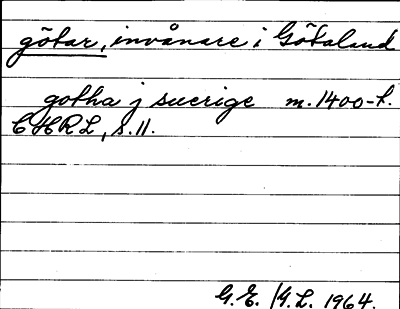 götar, invånare i Götaland
gotha j suerige m. 1400-t.
CHRL, s. 11.
G.E. /G.L. 1964.